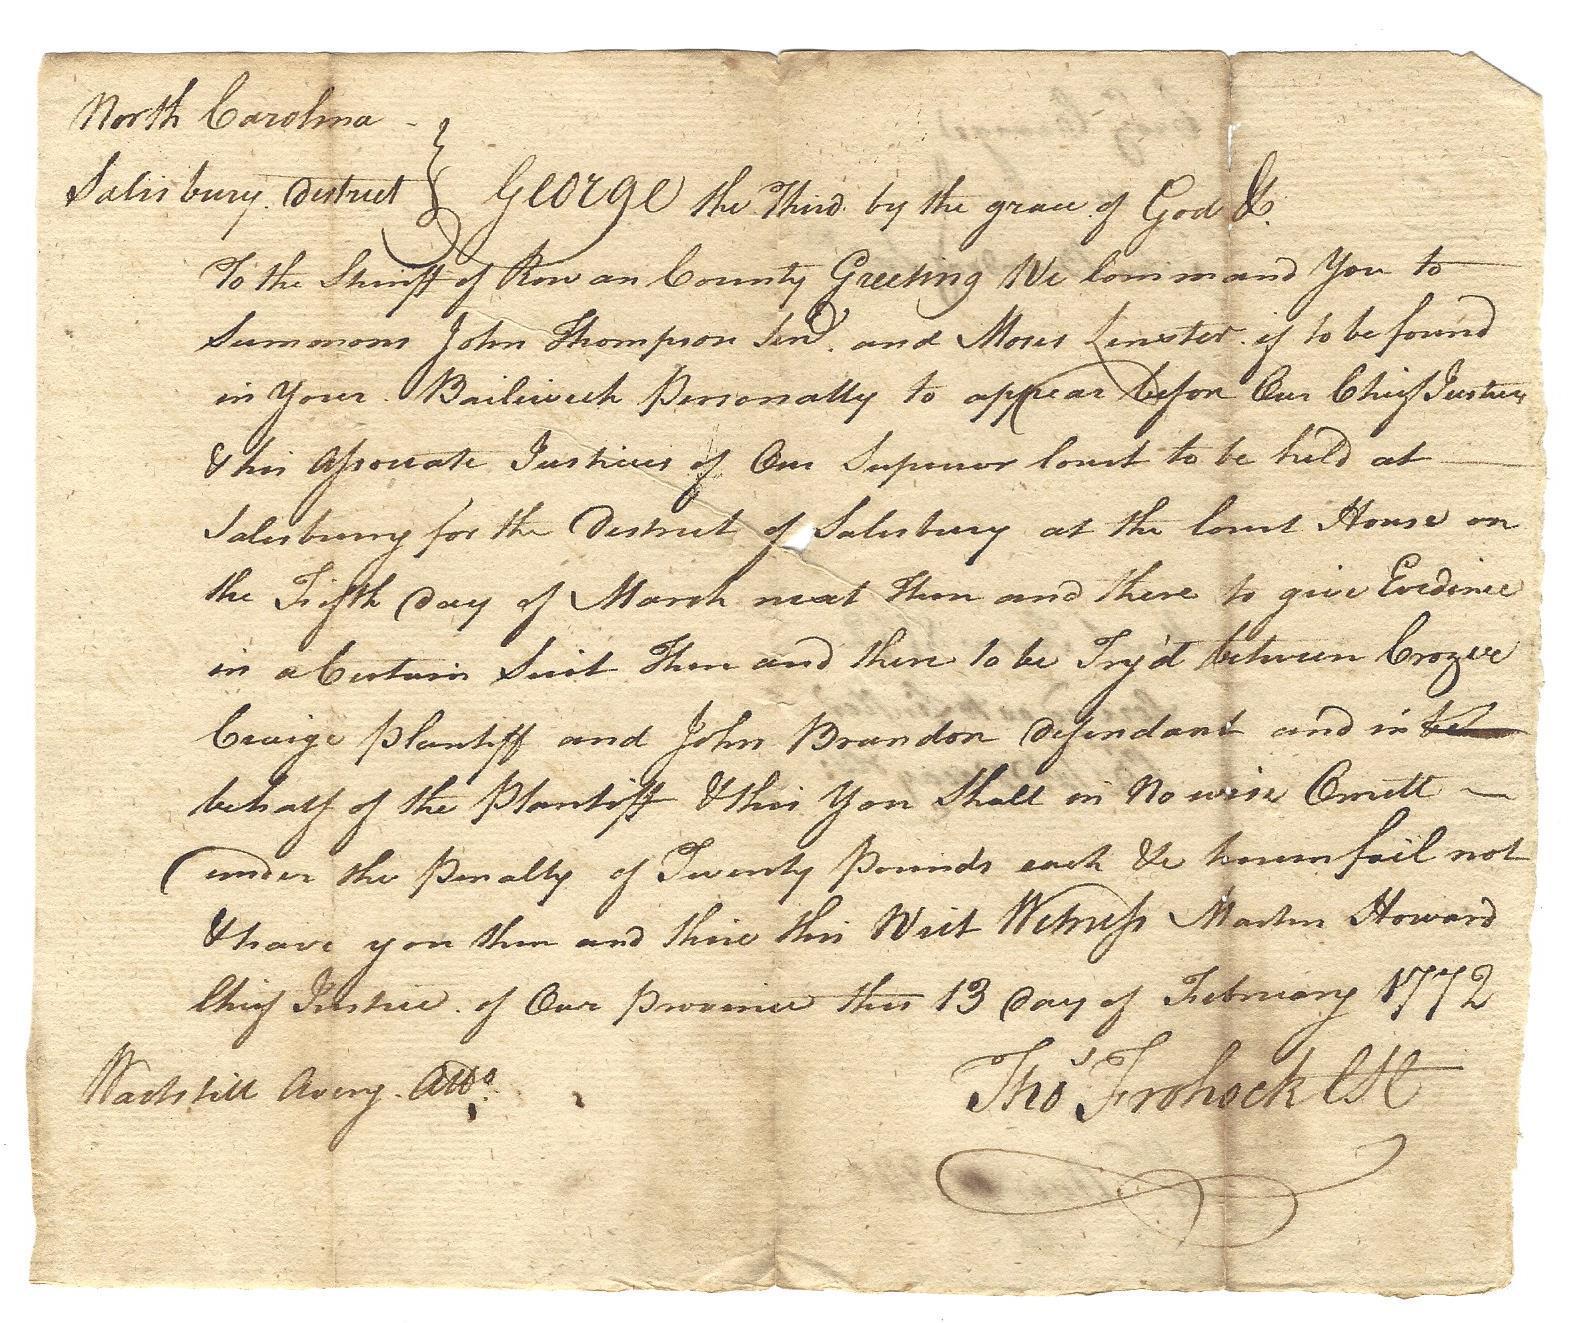 North Carolina -
Salisbury District } George the Third by the grace of God &c.
To the Sheriff of Rowan County Greeting We Command You to
Summons John Thompson Senr. and Moses Linster if to be found
in Your Bailiwick Personally to appear before Our Chief Justice
& his Associate Justices of Our Superior Court to be held at
Salisbury for the District of Salisbury at the Court House on
the Fifth day of March next Then and there to give Evidence
in a Certain Suit Then and there to be Try'd between Crozier
Craige Plantiff and John Brandon Defendant and in
behalf of the Plantiff & this You Shall in No wise Omitt
under the Penalty of Twenty Pounds each &c herein fail not
& have you then and there this Writ Witness Martin Howard
Chief Justice of Our Province this 13 Day of February 1772
Waitstill Avery Atto.
Thos Frohock